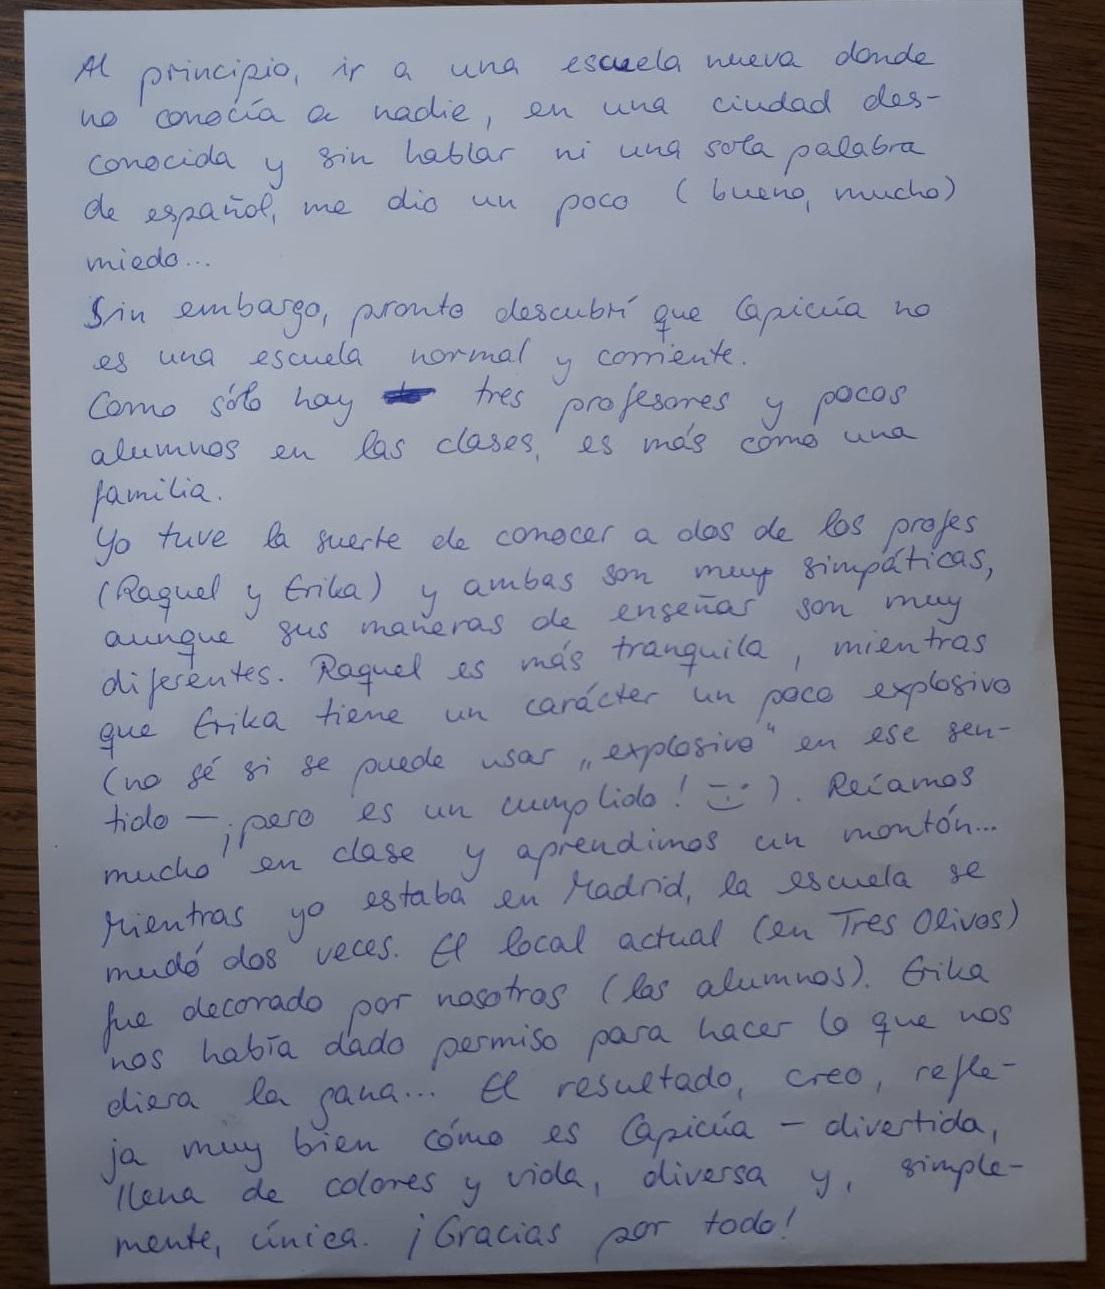 Al principio, ir a una escuela nueva donde
no conocía a nadie, en una ciudad des-
conocida y sin hablar ni una sola palabra
de español, me dio un poco (bueno, mucho)
miedo...
Sin embargo, pronto descubrí que Capicúa no
es una escuela normal y corriente.
Como sólo hay tres profesores y pocos
alumnos en las clases, es más como una
familia.
Yo tuve la suerte de conocer a dos de los profes
(Raquel y Erika) y ambas son muy simpáticas,
aunque sus maneras de enseñar son muy
diferentes. Raquel es más tranquila, mientras
que Erika tiene un carácter un poco explosivo
(no sé si se puede usar „explosivo“ en ese sen-
tido – ¡pero es un cumplido! :-)). Reíamos
mucho en clase y aprendimos un montón...
Mientras yo estaba en Madrid, la escuela se
mudó dos veces. El local actual (en Tres Olivos)
fue decorado por nosotros (los alumnos). Erika
nos había dado permiso para hacer lo que nos
diera la gana... El resultado, creo, refle-
ja muy bien cómo es Capicúa – divertida,
llena de colores y vida, diversa y, simple-
mente, única. ¡Gracias por todo!